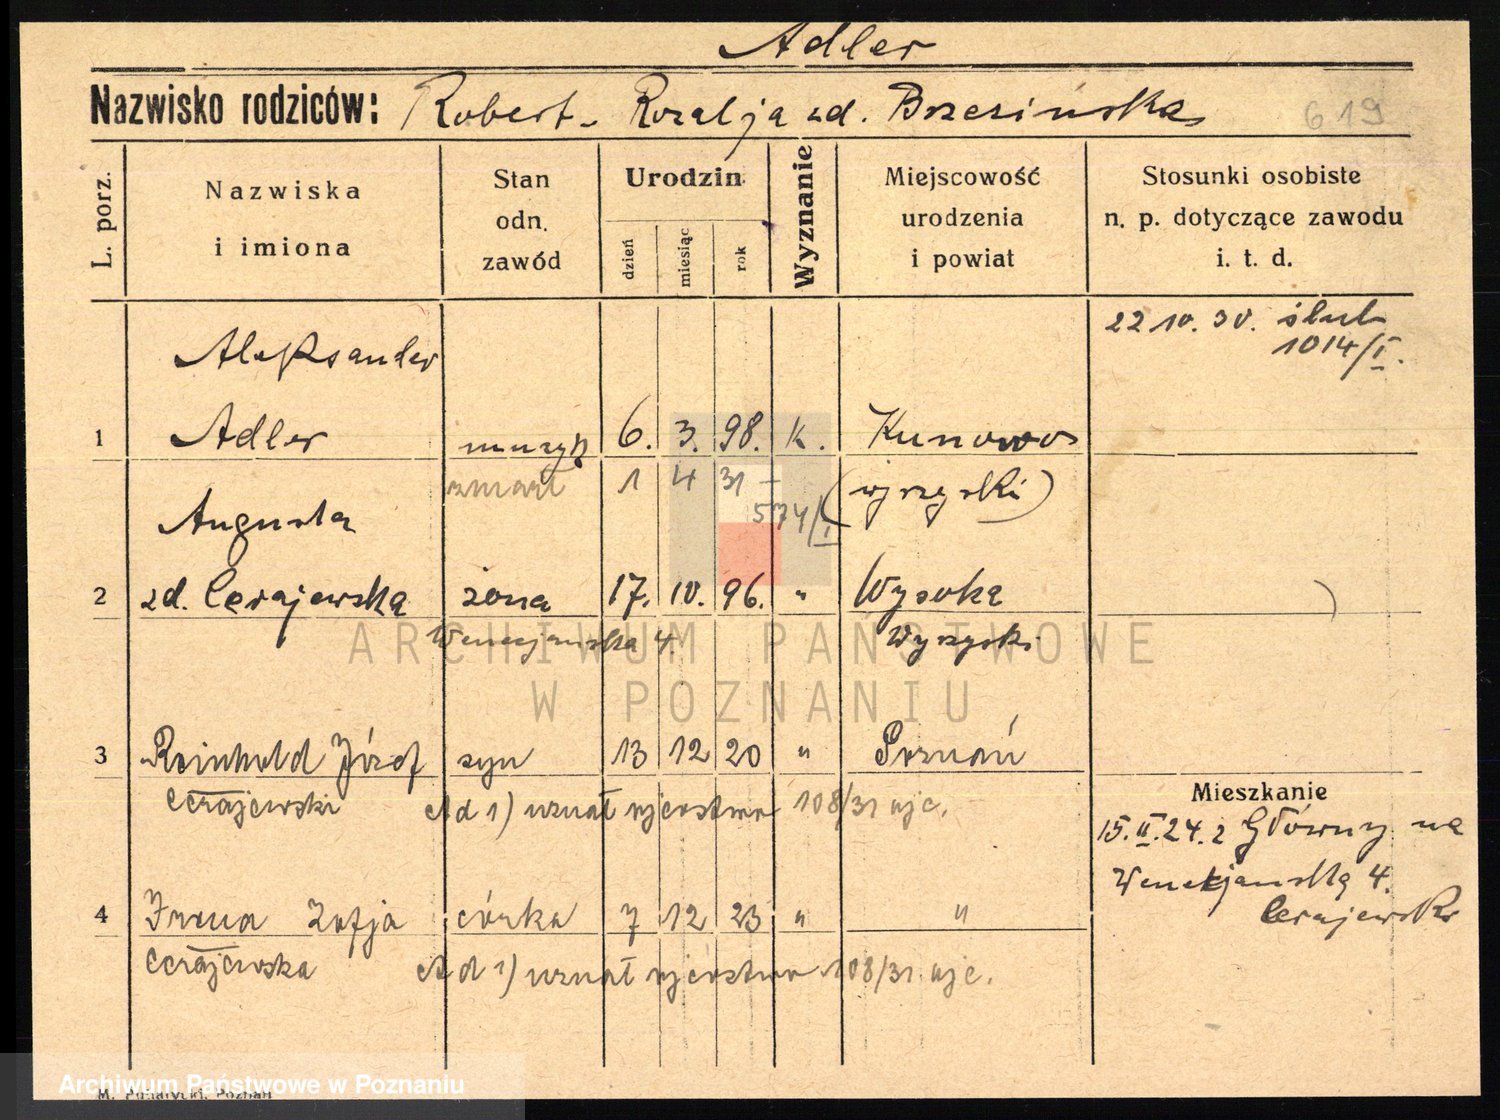 Adler
Nazwisko rodziców: Robert - Rozalja zd. Brzezińska 619
L. porz.
Nazwiska i imiona
Stan odn. zawód
Urodzin
dzień
miesiąc
rok
Wyznanie
Miejscowość urodzenia i powiat
Stosunki osobiste n. p. dotyczące zawodu i. t. d.
22 10. 30. ślub
1014/I.
Aleksander
1 Adler muzyk 6. 3. 98. k. Kunowo
zmarł 1 4 31 - 574/I (wyrzyski)
Augusta
2 zd. Cerajewska żona 17. 10. 96. " Wysoka
Wenecjańska 4. Wyrzyski
3 Reinhold Józef syn 13 12 20 " Poznań
Cerajewski Ad 1) uznał ojcostwo 108/31 ojc.
Mieszkanie
15.II.24. z Główny na
Wenecjańską 4.
Cerajewska
4 Irena Zofja córka 7 12 23 " "
Cerajewska Ad 1) uznał ojcostwo 108/31. ojc.
ARCHIWUM PAŃSTWOWE
W POZNANIU
Archiwum Państwowe w Poznaniu
M. Putiatycki, Poznań